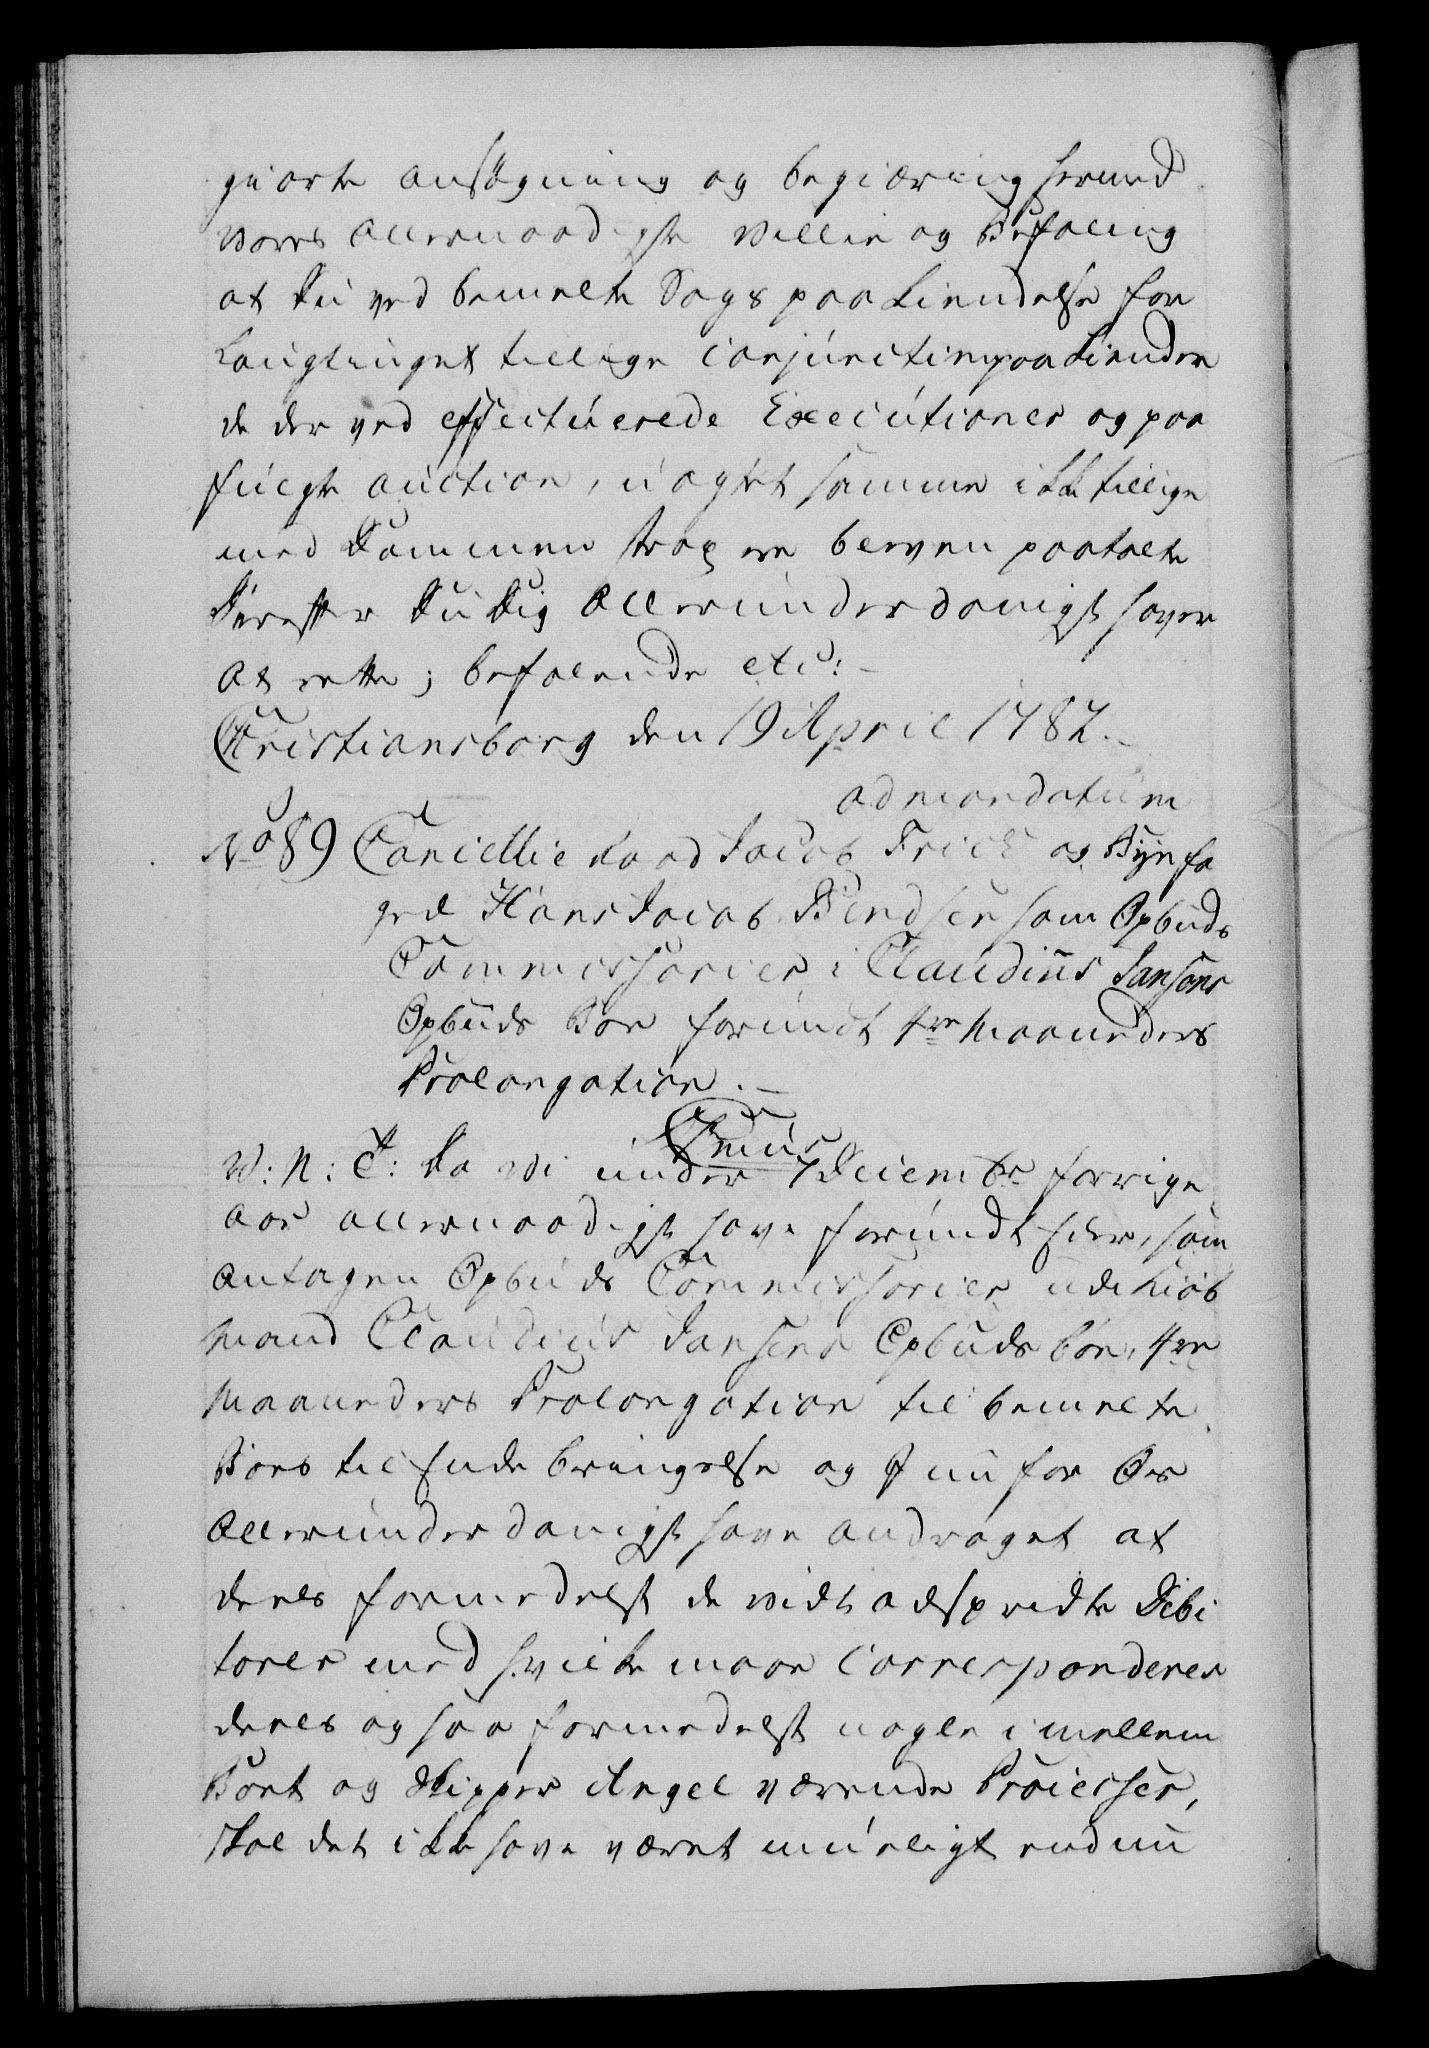 giorte ansøgning og begiæring hermed
vores allernaadigste Villie og Befaling
at Du ved bemelte Sags paakiendelse for
Laugtinget tillige conjunctim paakiender
de der ved effectuerede Executioner og paa
fulgte auction, uagtet samme ikke tillige
med Dommen strax ere bleven paatalte
Derefter Du Dig allerunderdanigst haver
at rette; befalende etc:
Christiansborg den 19 April 1782.
ad mandatum
No 89 Cancellie Raad Jacob Frick og Byefo
ged Hans Jacob Bendsen som Opbuds
Commissarier i Claudius Jansens
Opbuds Boe forundt 4re Maaneders
Prolongation.
V: N: C: Da Vi under 7 Decembr forrige
Aar allernaadigst have forundt Eder, som
antagen Opbuds Commissarier udi Kiøb
mand Claudius Jansens Opbuds boe, 4re
Maaneders Prolongation til bemelte
Boes til Ende bringelse og I nu for Os
allerunderdanigst have andraget at
deels formedelst de vidt adspredte Debi
torer med hvilke maae Corresponderes
deels og saa formedelst nogle imellem
Boet og Skipper Angel værende Processer,
skal det ikke have været mueligt endnu